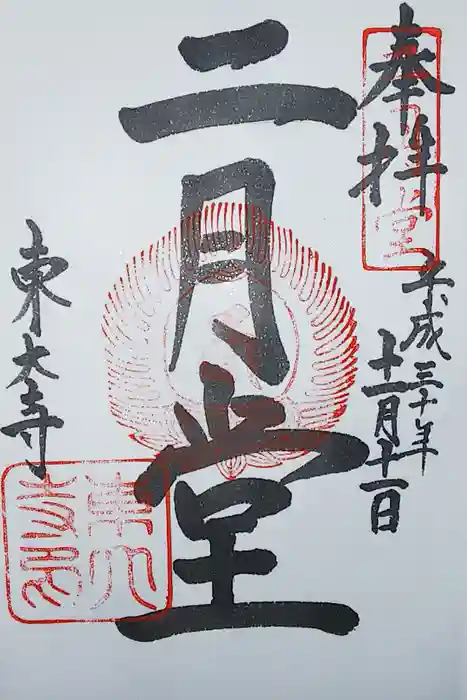 奉拝
平成三十年
十一月十一日
二月堂
東大寺